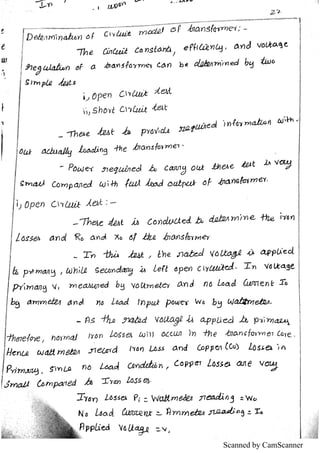 27
Determination of Circuit model of transformer:-
The Circuit Constants, efficiency, and voltage
regulation of a transformer can be determined by two
Simple tests
i, open Circuit test
ii, Short Circuit test
- These test to provide required information with-
out actually loading the transformer.
- Power required to carry out these test is very
small Compared with full load output of transformer.
i, open Circuit test :-
- These test is Conducted to determine the iron
Losses and Ro and Xo of the transformer
- In this test, the rated Voltage is applied
to primary, while Secondary is left open circuited. In voltage
primary V₁ measured by voltmeter and no load Current Io
by ammeter and no load input power Wo by Wattmeter.
- As the rated voltage is applied to primary
therefore, normal iron losses will occur in the transformer core.
Hence wattmeter record iron Loss and Copper(Cu) Losses in
Primary. Since no Load Condition, Copper Losses are very
Small Compared to Iron Losses.
Iron Losses Pi = Wattmeter reading = Wo
No Load Current = Ammeter reading = Io
Applied Voltage = V₁
Scanned by CamScanner